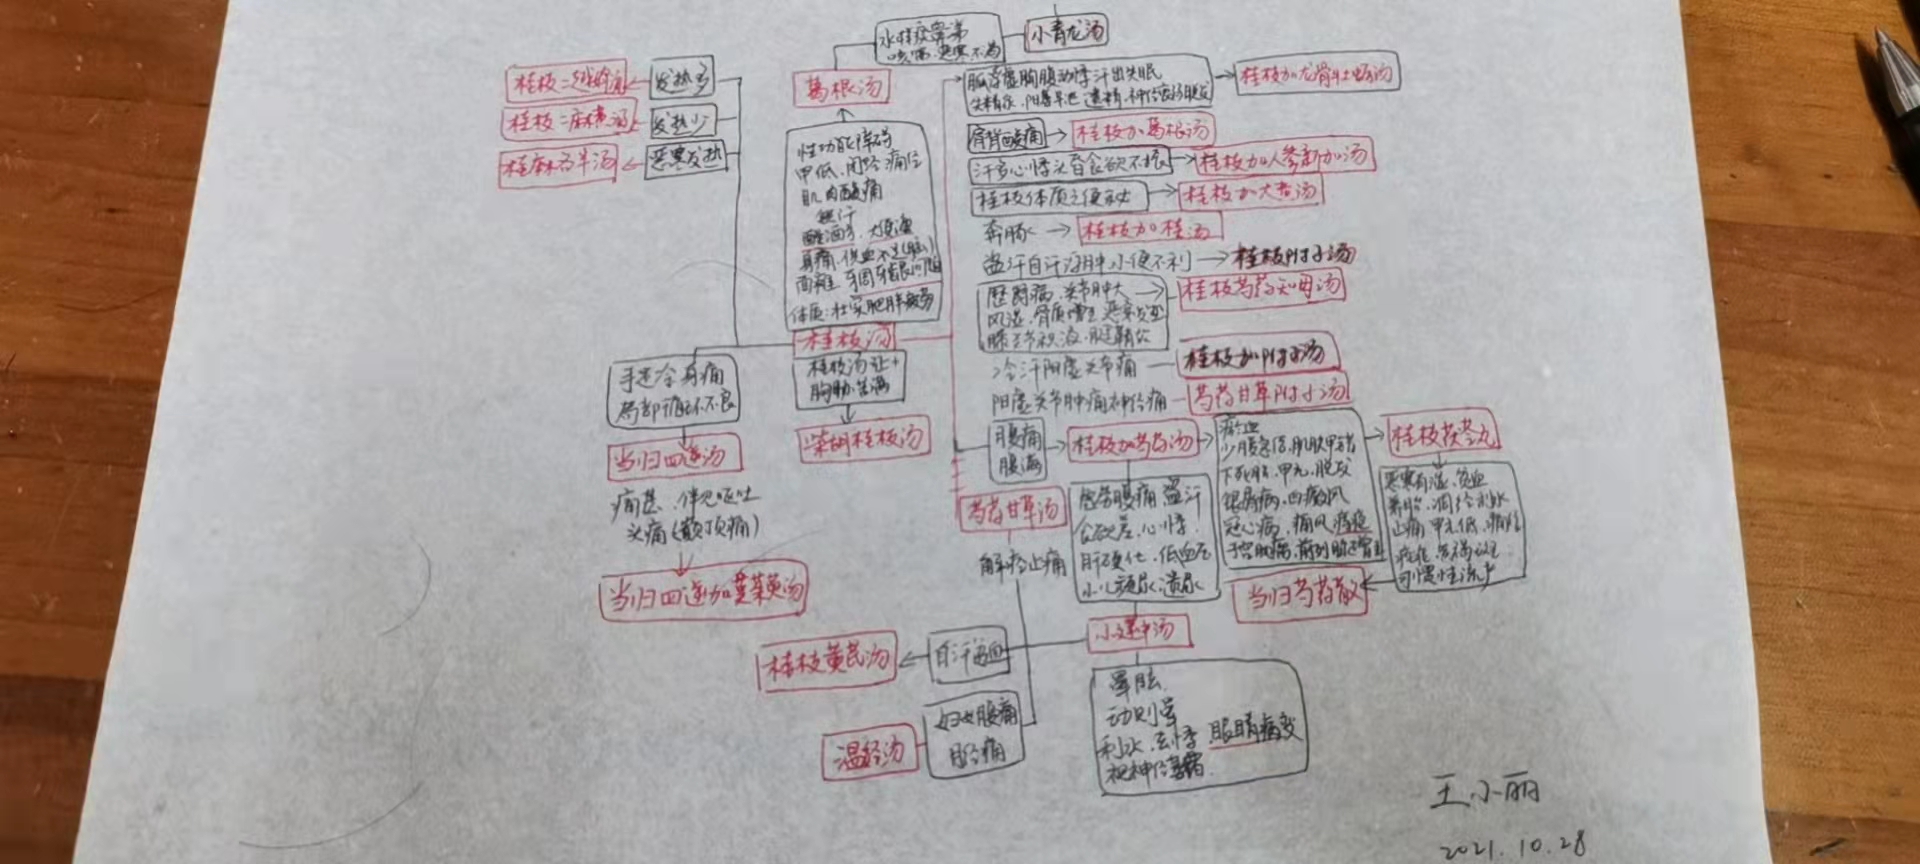 水样痰鼻涕
咳喘 恶寒不渴
小青龙汤
葛根汤
桂枝二越婢汤
发热多
桂枝二麻黄汤
发热少
桂麻各半汤
恶寒发热
性功能障碍
甲低、闭经 痛经
肌肉酸痛
无汗
醒酒
大便溏
体质:壮实肥胖
桂枝汤
桂枝汤证+
胸胁苦满
柴胡桂枝汤
手足冷身痛
局部循环不良
当归四逆汤
痛甚、伴见呕吐
头痛(巅顶痛)
当归四逆加茱萸汤
胸腹动悸 汗出失眠
阳萎早泄 遗精
桂枝加龙骨牡蛎汤
肩背酸痛
桂枝加葛根汤
汗多心悸头昏食欲不振
桂枝加人参新加汤
桂枝体质之便秘
桂枝加大黄汤
奔豚
桂枝加桂汤
盗汗自汗浮肿小便不利
桂枝附子汤
历节病、关节肿大
风湿、骨质增生
膝关节积液
桂枝芍药知母汤
冷汗阳虚关节痛
桂枝加附子汤
阳虚关节肿痛神经痛
芍药甘草附子汤
腹痛
腹满
桂枝加芍药汤
瘀血
少腹急结、肌肤甲错
下死胎、甲亢、脱发
银屑病、白癜风
冠心病、痛风
子宫肌瘤、前列腺
桂枝茯苓丸
恶寒有湿、贫血
养胎、调经利水
止痛 甲低、痛经
习惯性流产
当归芍药散
芍药甘草汤
解痉止痛
虚劳腹痛 盗汗
食欲差、心悸、
肝硬化、低血压
小儿频尿、遗尿
小建中汤
自汗
桂枝黄芪汤
妇女腹痛
月经痛
温经汤
晕眩
动则晕
利水、心悸、眼睛病变
视神经
王小丽
2021.10.28